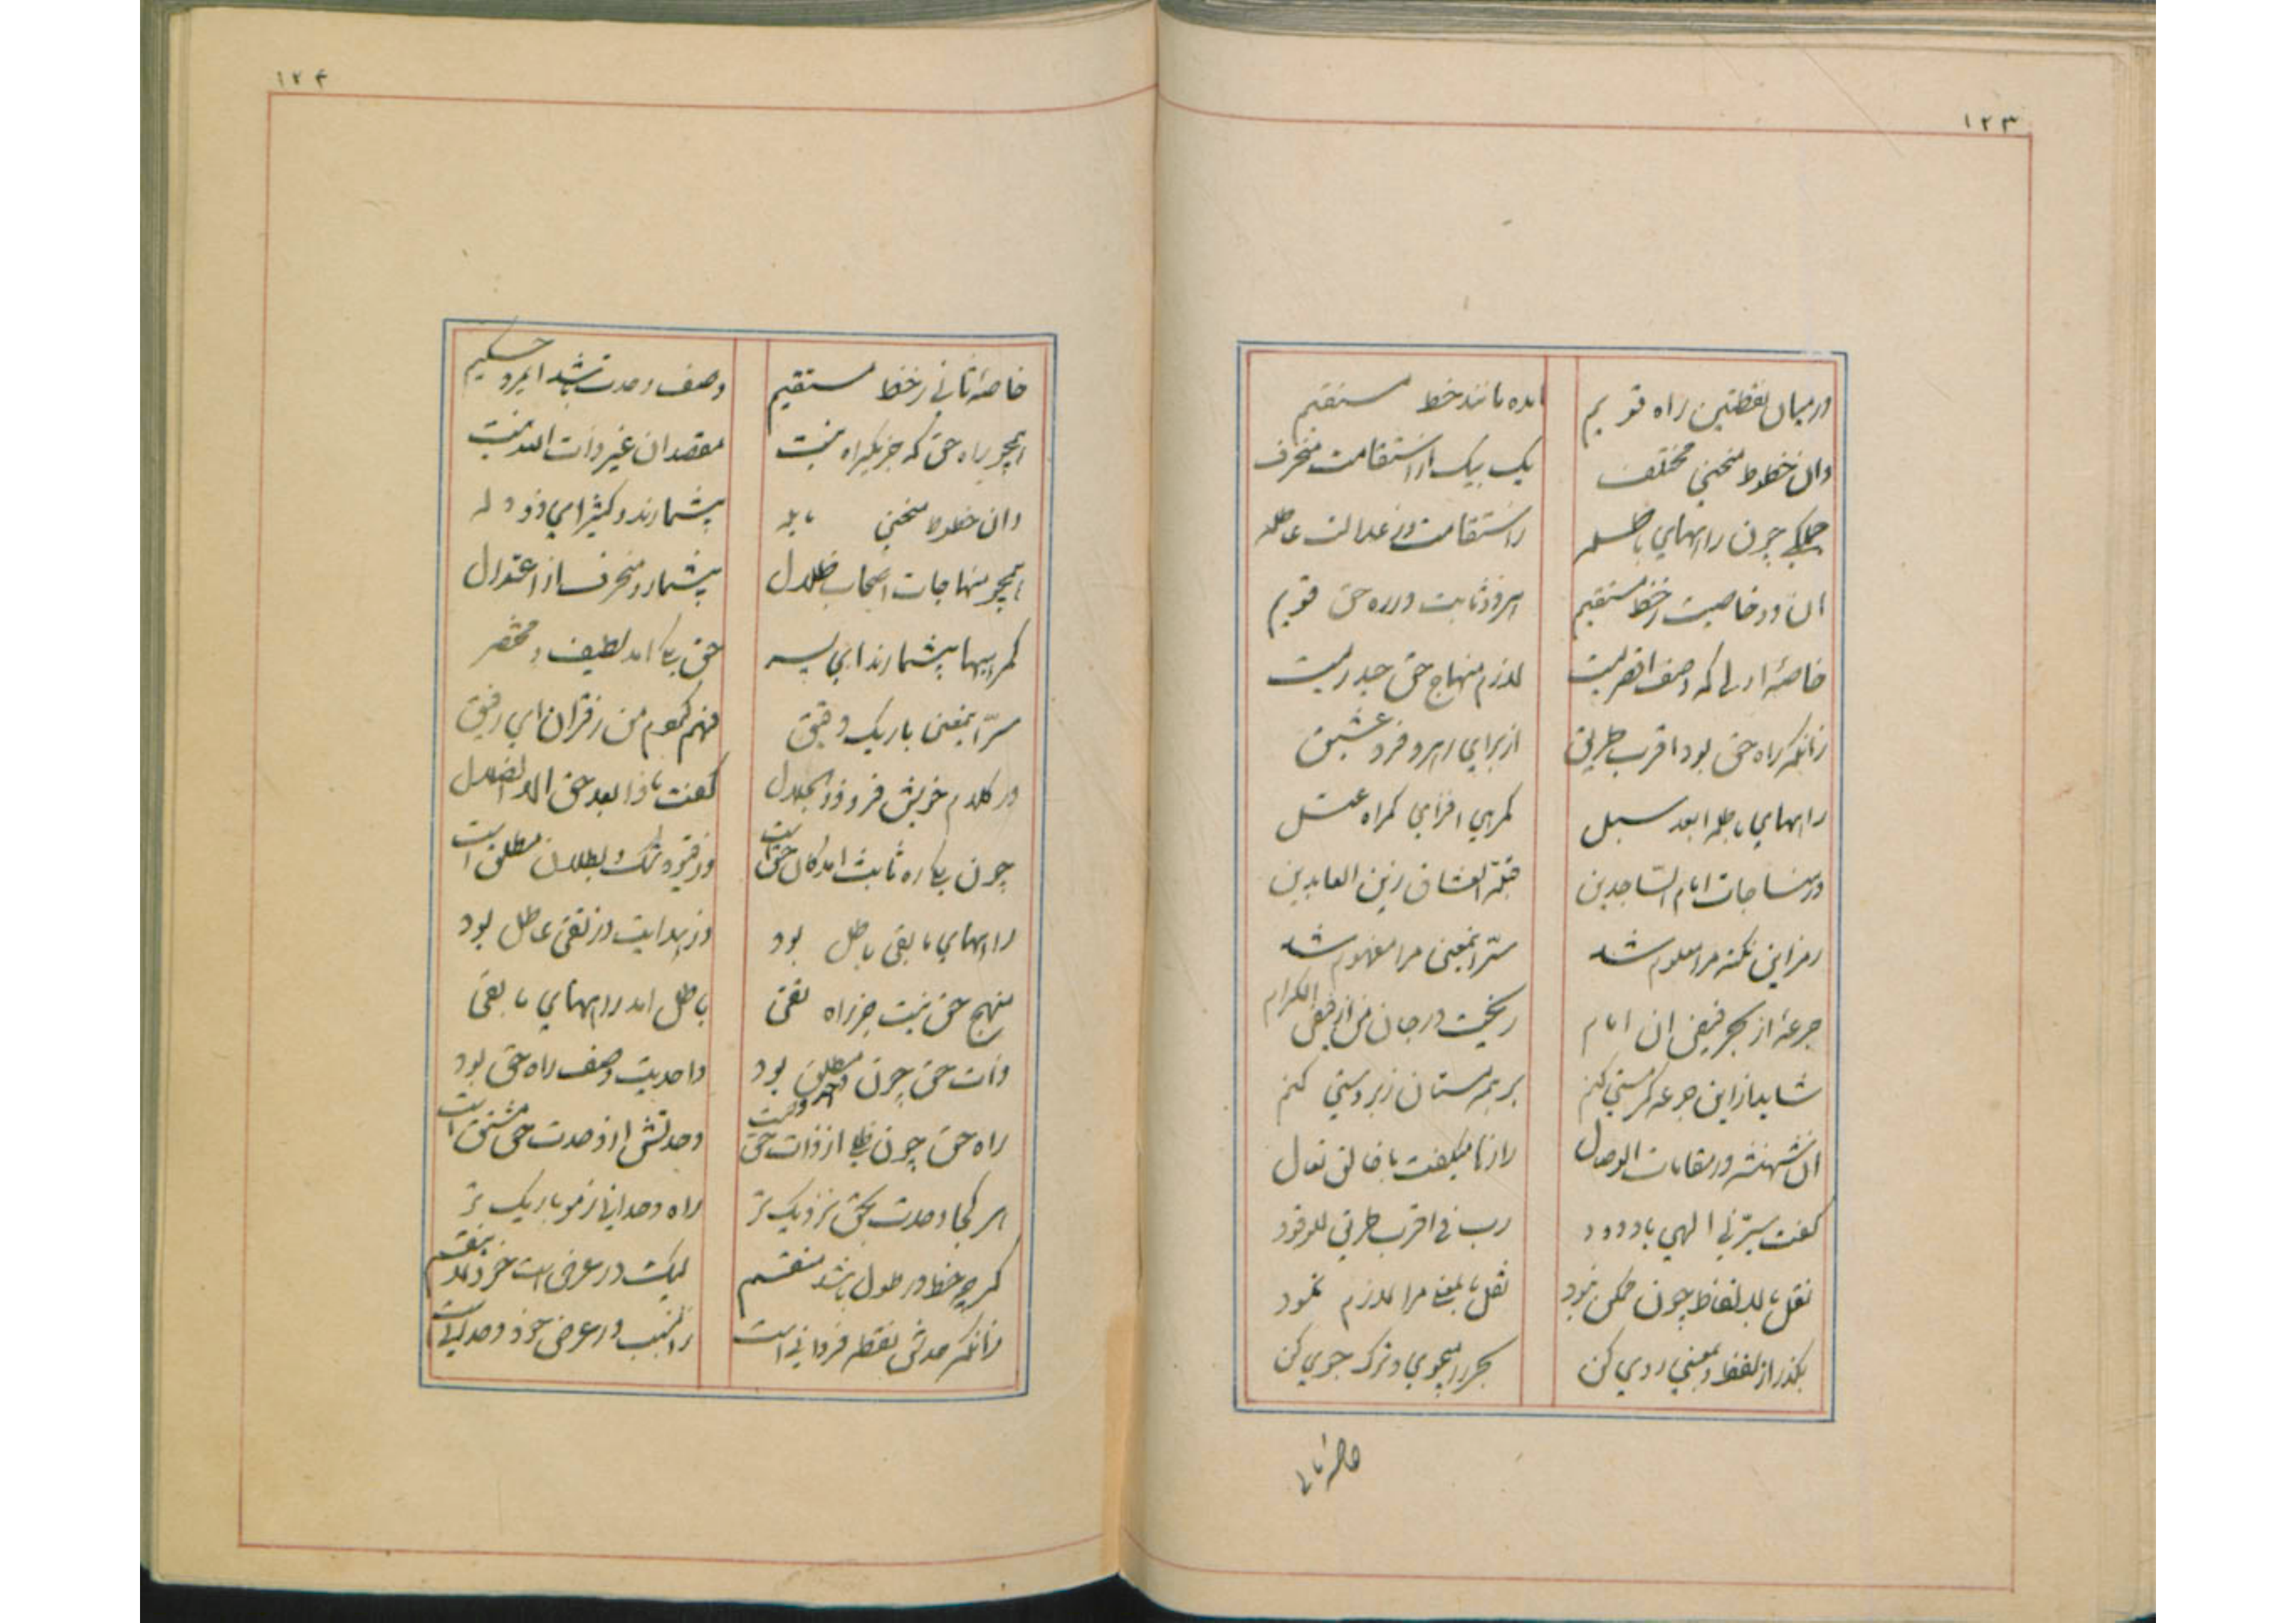 ۱۲۳
در میان نقطتین راه قویم	آمده مانند خط مستقیم
وان خطوط منحنی مختلف	یک بیک از استقامت منحرف
جملگی چون راههای باطله	ز استقامت وز عدالت عاطله
آن دو خاصیت ز خط مستقیم	هر دو ثابت در ره حق قویم
خاصهٔ اولی که وصف اقربیت	لازم منهاج حق
زانکه راه حق بود اقرب طریق	از برای رهرو فرد عشیق
راههای باطله ابعد سبل	گمرهی افزای گمراه عتل
در مناجات امام الساجدین	قبلة العشاق زین العابدین
رمز این نکته مرا معلوم شد	سرّ این معنی مرا مفهوم شد
جرعهٔ از بحر فیض آن امام	ریخت در جان من از فیض الکرام
شاید از این جرعه گر مستی کنم	بر همه مستان زبردستی کنم
آن شهنشه در مقامات الوصال	رازها میگفت با خالق تعال
گفت سیّرنی الهی یا ودود	رب فی اقرب طرق للوفود
نقل بالالفاظ چون ممکن نبود	نقل بالمعنی مرا لازم نمود
بگذر از لفظ و بمعنی روی کن	بحر را میجوی و ترک جوی کن
خاصهٔ ثانی
۱۲۴
خاصهٔ ثانی ز خط مستقیم	وصف وحدت باشد ایمرد حکیم
همچو راه حق که جز یکراه نیست	مقصد آن غیر ذات الله نیست
وان خطوط منحنی مایله	بیشمارند و کثیر ای ذو دله
همچو منهاجات اصحاب ضلال	بیشمار و منحرف از اعتدال
گمرهیها بیشمارند ای پسر	حق یکی آمد لطیف و مختصر
سرّ این معنی باریک دقیق	فهم کردم من ز قرآن ای رفیق
در کلام خویش فرد ذو الجلال	گفت ماذا بعد حق الا الضلال
چون یکی ره ثابت آمد کان حق است	وز قیود شک و بطلان مطلق است
راههای مابقی باطل بود	وز هدایت وز تقی عاطل بود
منهج حق نیست جز راه تقی	باطل آمد راههای مابقی
ذات حق چون واحد مطلق بود	واحدیت وصف راه حق بود
راه حق چون ظل از ذات حق است	وحدتش از وحدت حق مشتق است
هر کجا وحدت بحق نزدیک تر	راه وحدانی ز مو باریک تر
گرچه خط در طول باشد منقسم	لیک در عرض است خود لا ینقسم
زانکه حدش نقطهٔ فردانی است	زان سبب در عرض خود وحدانی است